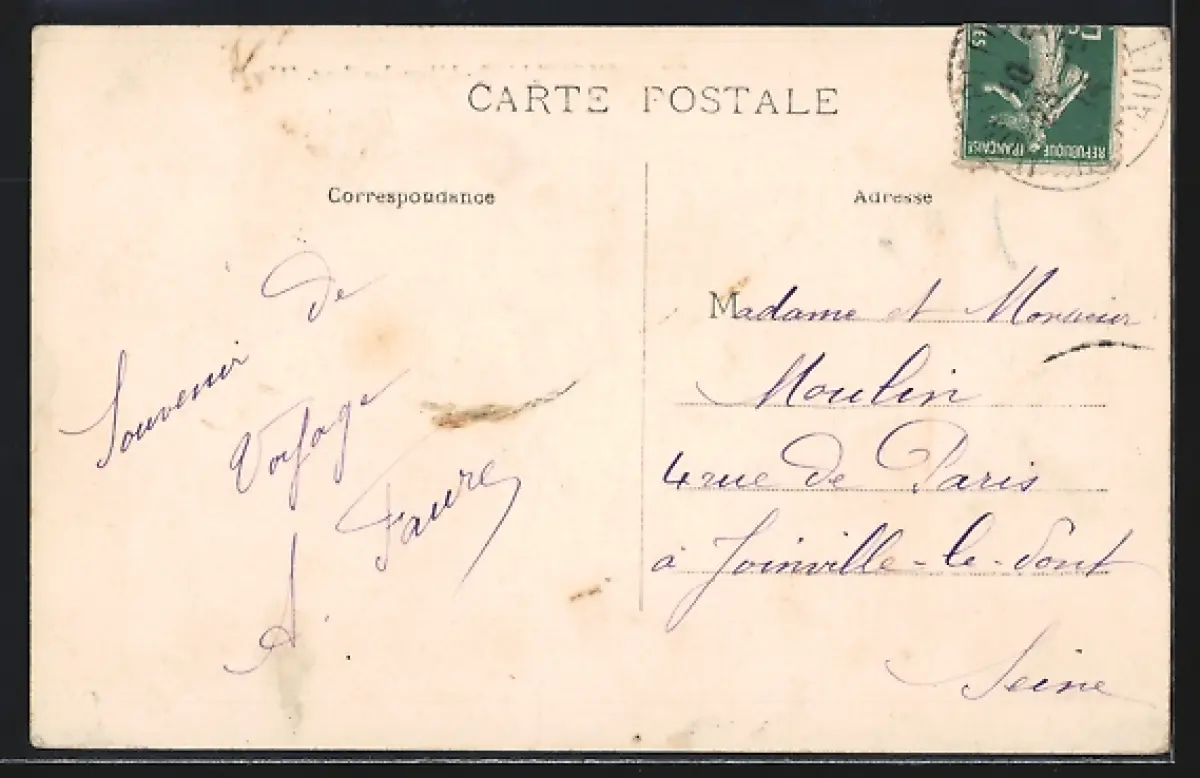 CARTE POSTALE
Correspondance
Souvenir de
Voyage
A. Faure
Adresse
Madame et Monsieur
Moulin
4 rue de Paris
à Joinville-le-Pont
Seine
REPUBLIQUE FRANÇAISE